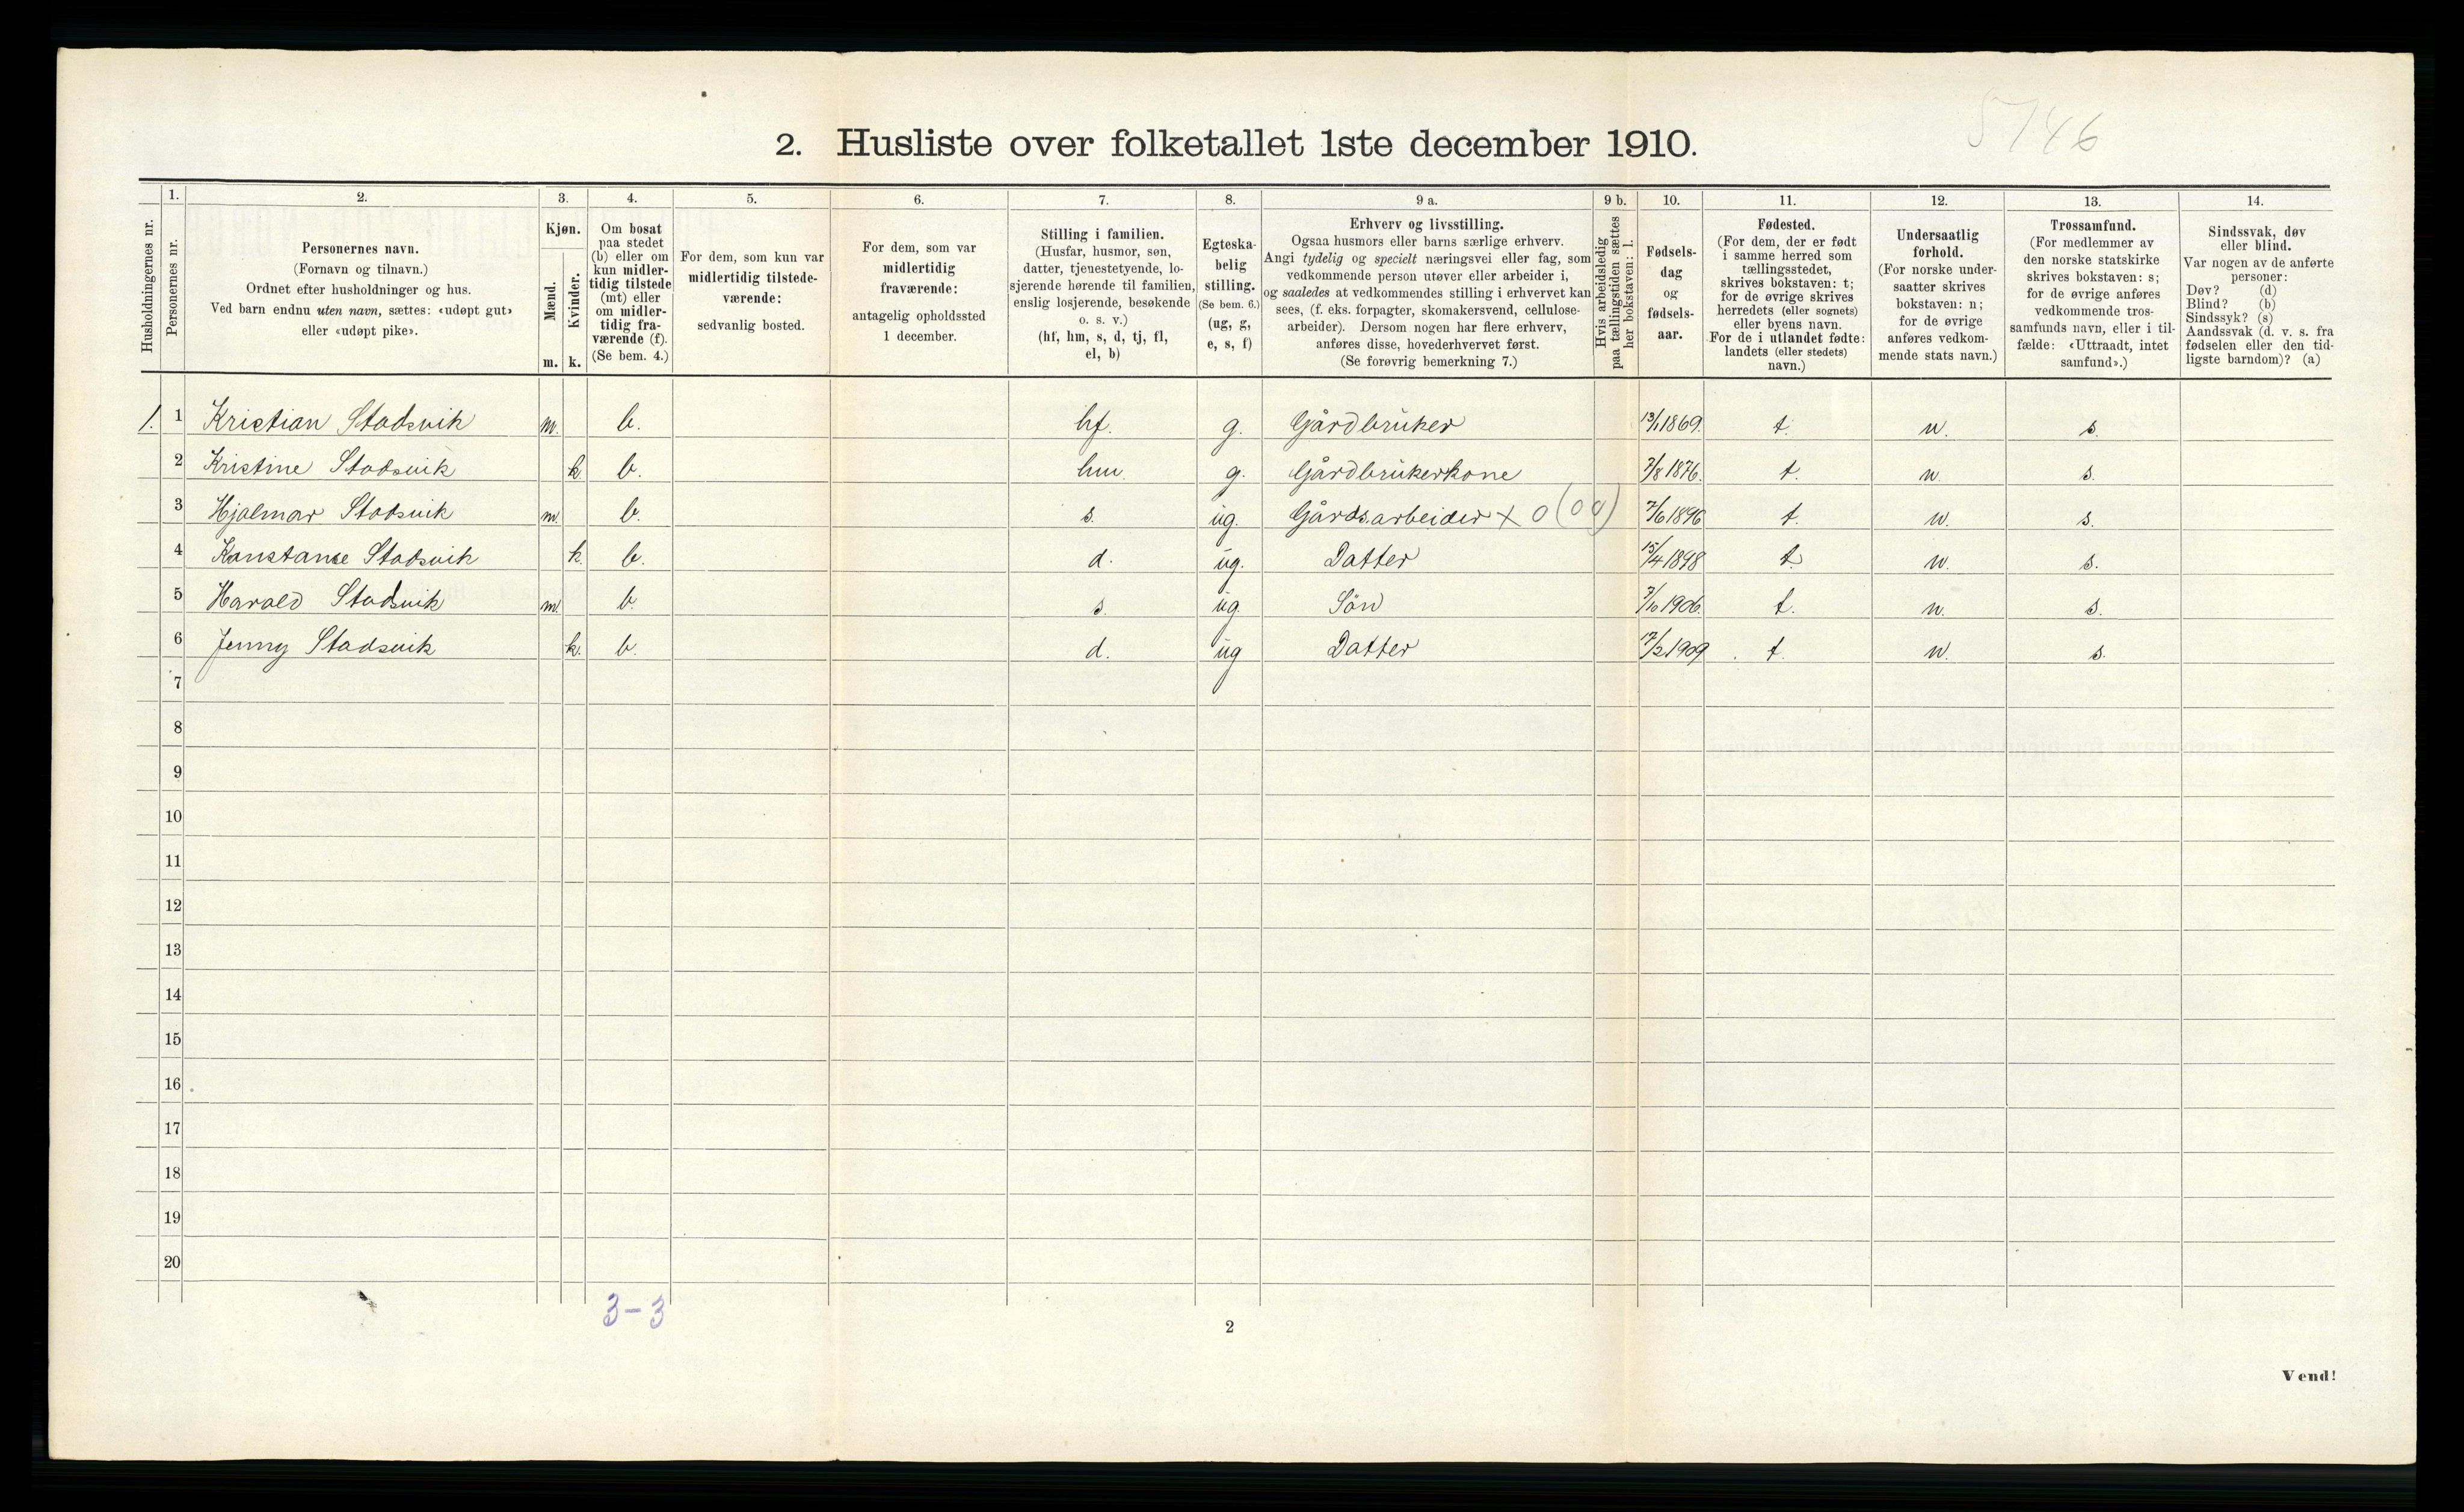 5746
2. Husliste over folketallet 1ste december 1910.
Husholdningernes nr.
1.
Personernes nr.
2.
Personernes navn.
(Fornavn og tilnavn.)
Ordnet efter husholdninger og hus.
Ved barn endnu uten navn, sættes: «udøpt gut»
eller «udøpt pike».
3.
Kjøn.
Mænd.
Kvinder.
m. k.
4.
Om bosat
paa stedet
(b) eller om
kun midler-
tidig tilstede
(mt) eller
om midler-
tidig fra-
værende (f).
(Se bem. 4.)
5.
For dem, som kun var
midlertidig tilstede-
værende:
sedvanlig bosted.
6.
For dem, som var
midlertidig
fraværende:
antagelig opholdssted
1 december.
7.
Stilling i familien.
(Husfar, husmor, søn,
datter, tjenestetyende, lo-
sjerende hørende til familien,
enslig losjerende, besøkende
o. s. v.)
(hf, hm, s, d, tj, fl,
el, b)
8.
Egteska-
belig
stilling.
(Se bem. 6.)
(ug, g,
e, s, f)
9 a.
Erhverv og livsstilling.
Ogsaa husmors eller barns særlige erhverv.
Angi tydelig og specielt næringsvei eller fag, som
vedkommende person utøver eller arbeider i,
og saaledes at vedkommendes stilling i erhvervet kan
sees, (f. eks. forpagter, skomakersvend, cellulose-
arbeider). Dersom nogen har flere erhverv,
anføres disse, hovederhvervet først.
(Se forøvrig bemerkning 7.)
9 b.
Hvis arbeidsledig
paa tællingstiden sættes
her bokstaven: l.
10.
Fødsels-
dag
og
fødsels-
aar.
11.
Fødested.
(For dem, der er født
i samme herred som
tællingsstedet,
skrives bokstaven: t;
for de øvrige skrives
herredets (eller sognets)
eller byens navn.
For de i utlandet fødte:
landets (eller stedets)
navn.)
12.
Undersaatlig
forhold.
(For norske under-
saatter skrives
bokstaven: n;
for de øvrige
anføres vedkom-
mende stats navn.)
13.
Trossamfund.
(For medlemmer av
den norske statskirke
skrives bokstaven: s;
for de øvrige anføres
vedkommende tros-
samfunds navn, eller i til-
fælde: «Uttraadt, intet
samfund».)
14.
Sindssvak, døv
eller blind.
Var nogen av de anførte
personer:
Døv? (d)
Blind? (b)
Sindssyk? (s)
Aandssvak (d. v. s. fra
fødselen eller den tid-
ligste barndom)? (a)
1. 1 Kristian Stadsvik m. b. hf. g. Gårdbruker 13/1 1869. t. n. s.
2 Kristine Stadsvik k. b. hm. g. Gårdbrukerkone 7/8 1876. t. n. s.
3 Hjalmar Stadsvik m. b. s. ug. Gårdsarbeider x 0 (00) 7/6 1896 t. n. s.
4 Konstanse Stadsvik k. b. d. ug. Datter 15/4 1898 t n. s.
5 Harald Stadsvik m. b. s. ug. Sön 7/10 1906. t. n. s.
6 Jenny Stadsvik k. b. d. ug Datter 17/2 1909 t. n. s.
7
8
9
10
11
12
13
14
15
16
17
18
19
20
3-3
2
Vend!